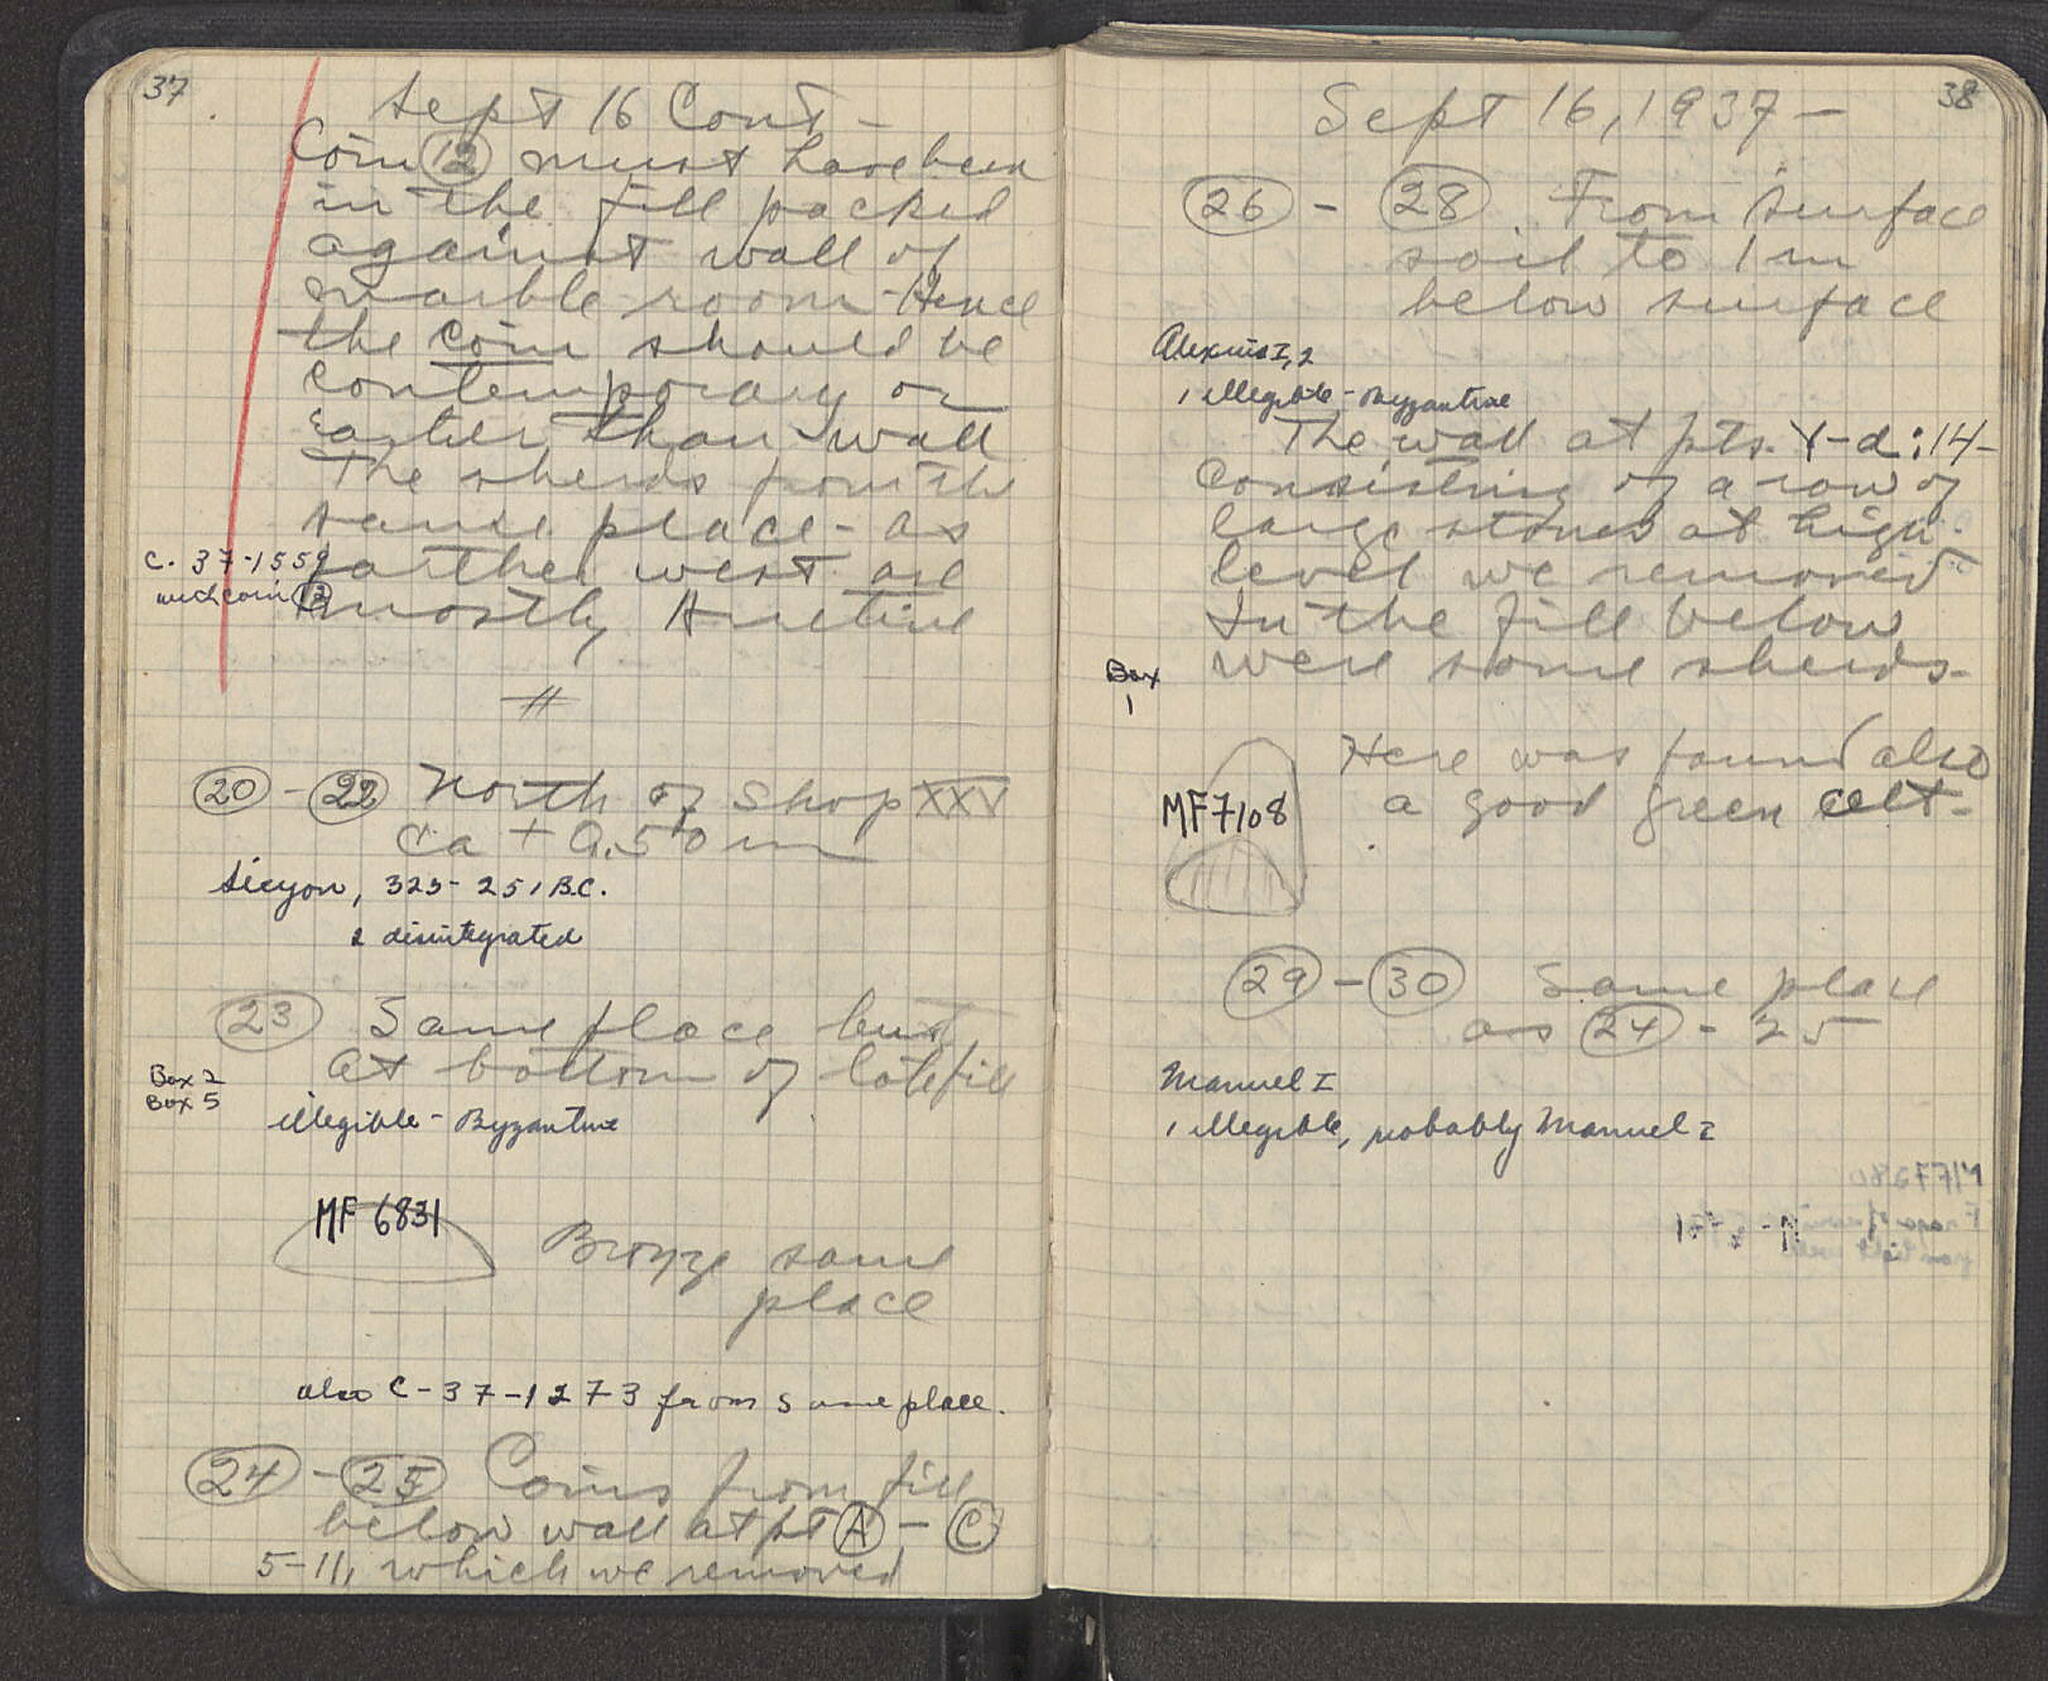 37
Sept 16 Cont -
Coin 12 must have been
in the fill packed
against wall of
marble room - Hence
the coin should be
contemporary or
earlier than wall
The sherds from the
same place - as
farther west are
mostly Arretine
C. 37-1559
with coin 12
#
20 - 22 North of Shop XXV
ca + 0.50 m
Sicyon, 323-251 B.C.
2 disintegrated
23 Same place but
at bottom of late fill
Box 2
Box 5
illegible - Byzantine
MF 6831
Bronze same
place
also C-37-1273 from same place.
24 - 25 Coins from fill
below wall at pt A - C
5-11, which we removed
38
Sept 16, 1937 -
26 - 28 From surface
soil to 1 m
below surface
Alexius I, 2
1 illegible - Byzantine
The wall at pts. Y-d:14-
consisting of a row of
large stones at high
level we removed
In the fill below
were some sherds-
Box
1
Here was found also
a good green celt-
MF7108
29 - 30 Same place
as 24 - 25
Manuel I
1 illegible, probably Manuel I